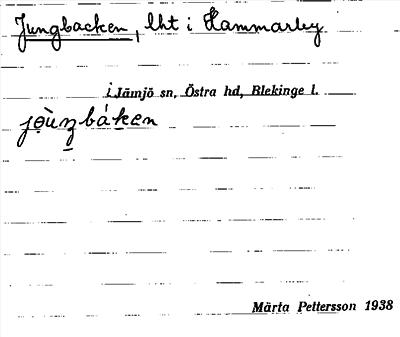 Jungbacken, lht i Hammarby
i Jämjö sn, Östra hd, Blekinge l.
Märta Pettersson 1938